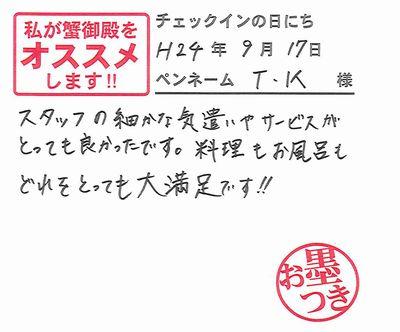 私が蟹御殿を
オススメ
します!!
チェックインの日にち
H24年9月17日
ペンネーム T.K 様
スタッフの細かな気遣いやサービスが
とっても良かったです。料理もお風呂も
どれをとっても大満足です!!
お墨つき